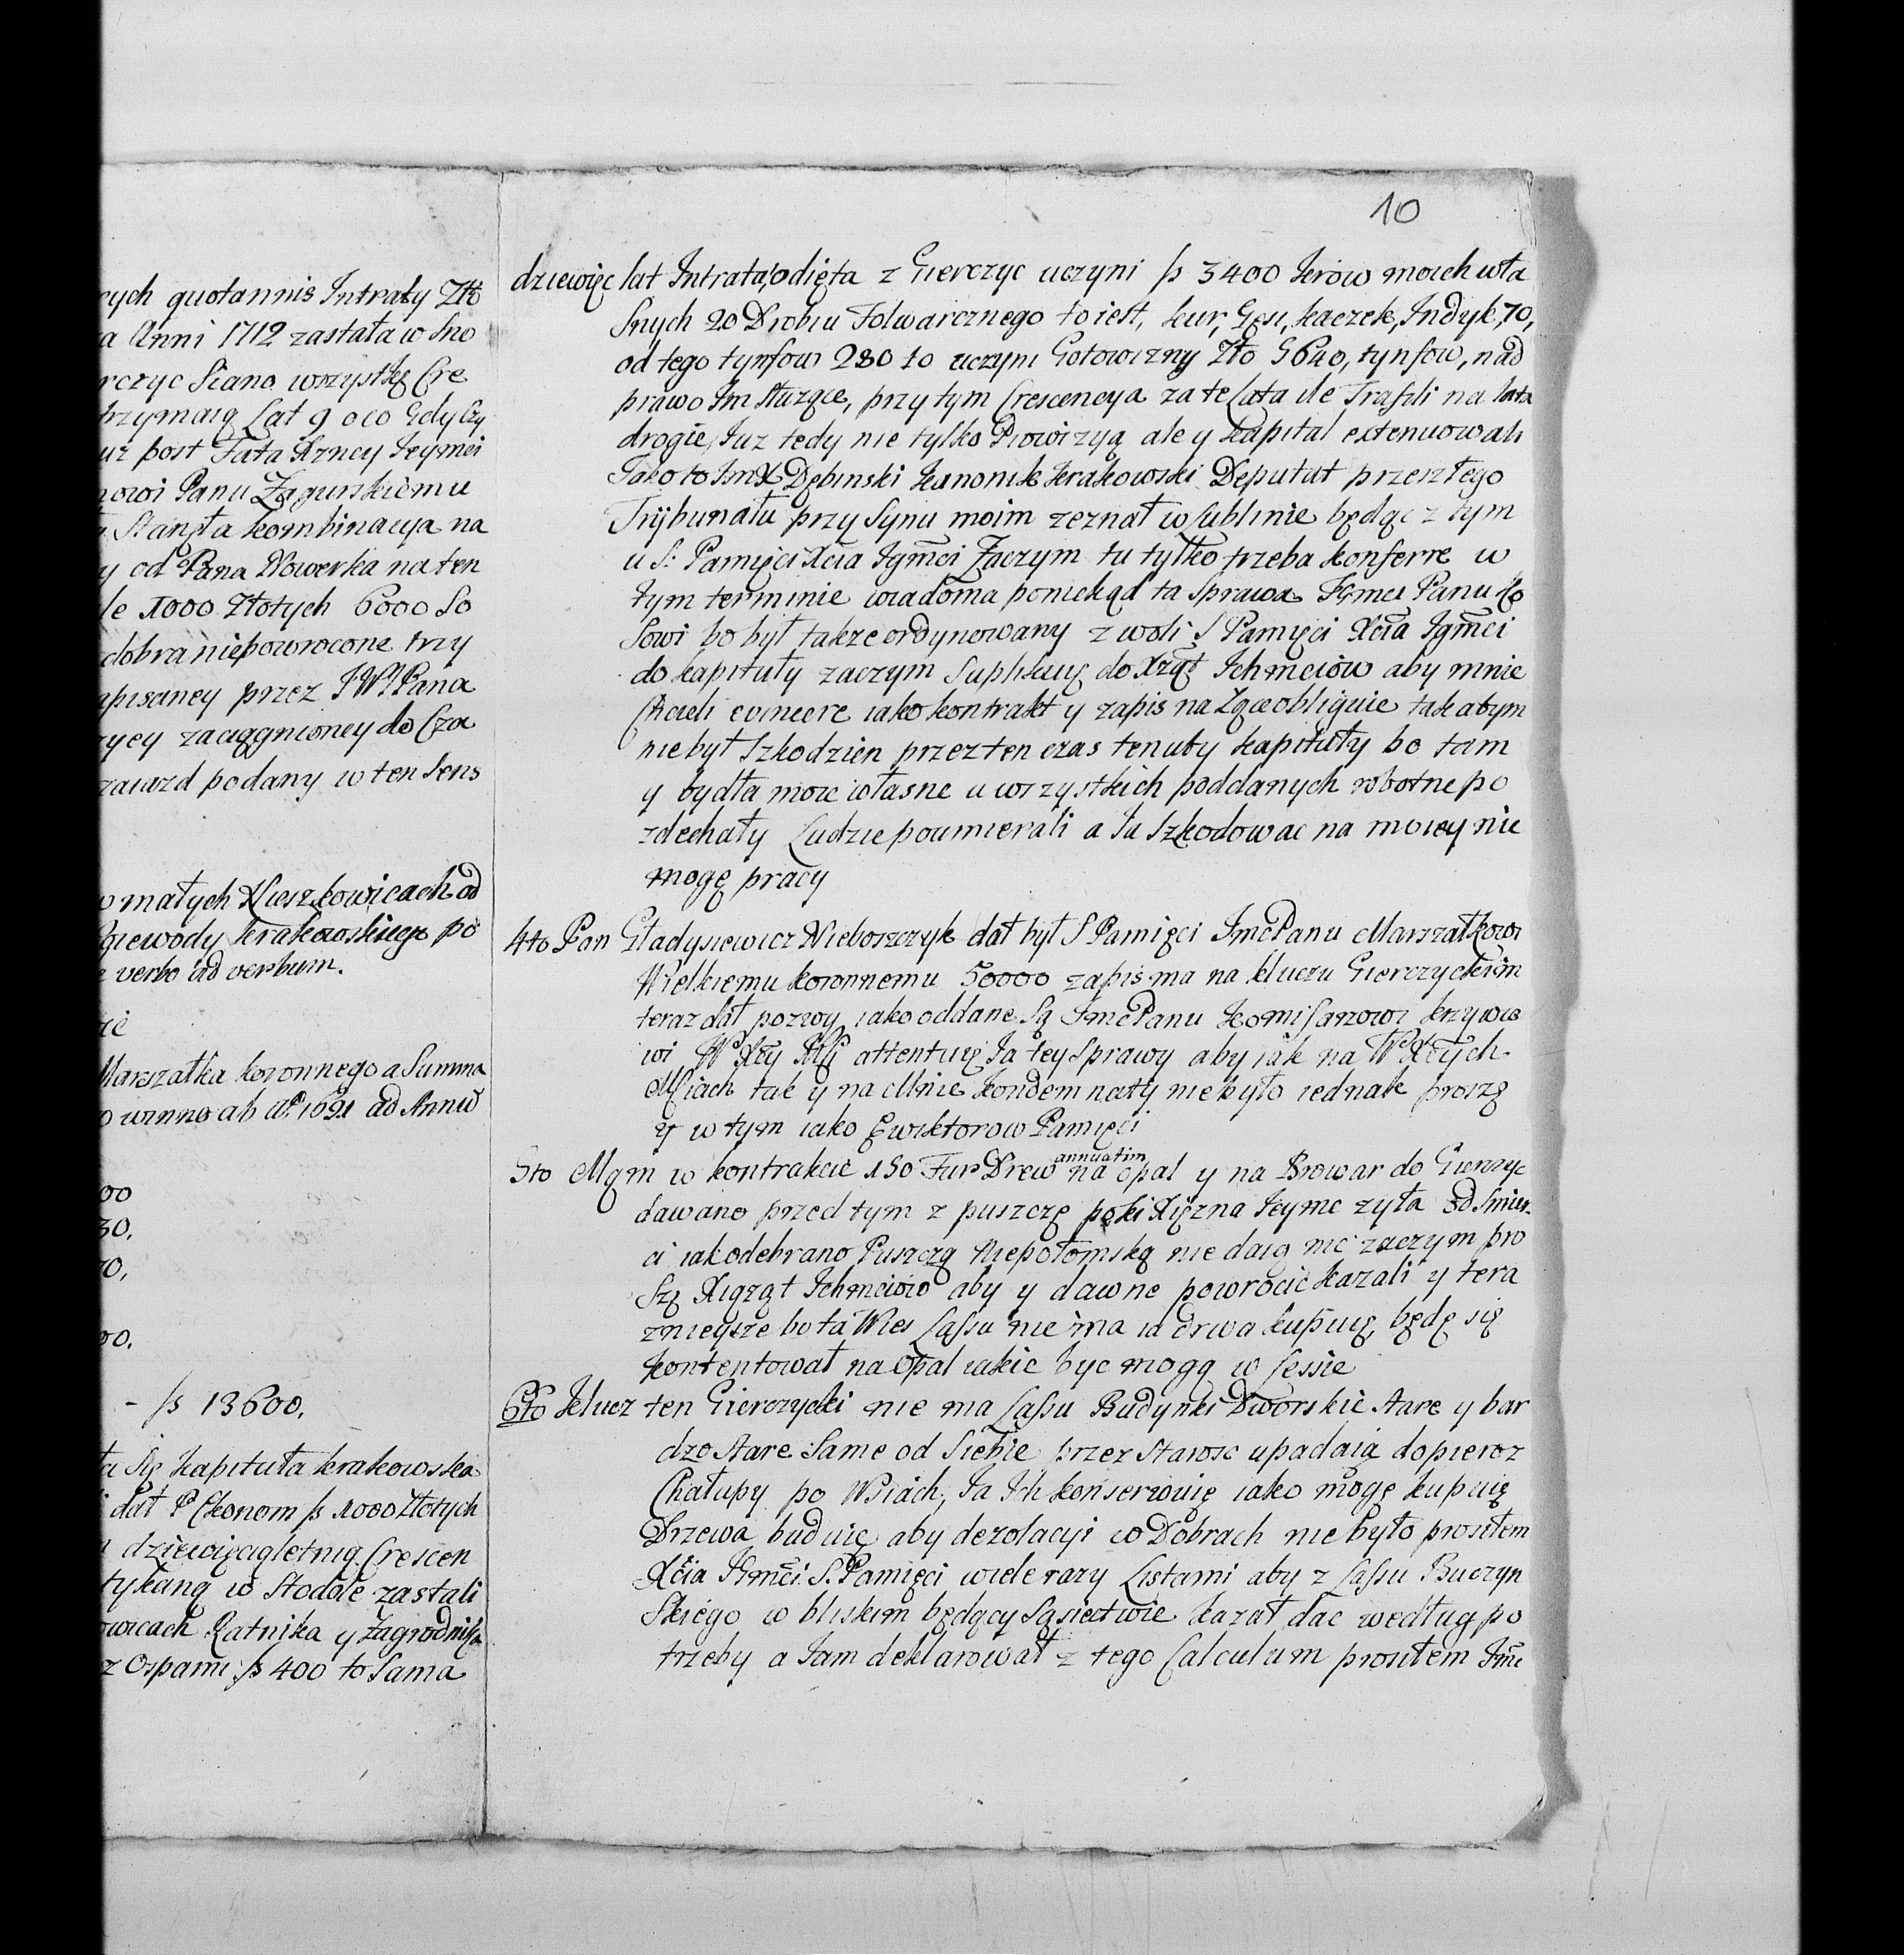 10
rych quotannis Intraty Zło
a Anni 1712 zastała w Sno
rczyc Siano wszystkę Cre
trzymaią Lat 9 oco Gdy Czy
uż post Fata Xzney Jeymci
nowi Panu Zagurskiemu
Stanęła kombinacyja na
y od Pana Nowerka na ten
le 1000 Złotych 6000 So
dobra niepowrocone trzy
apisaney przez JWPana
rycy zaciągnioney do Cza
zaiazd podany w ten Sens
w małych Nieszkowicach od
Woiewody krakowskiego po
e verbo ad verbum.
ie
Marszałka koronnego a Summa
o winno ab Ao 1691 ad Annu
00
30.
70,
00.
- fs 13600.
ła Się kapituła krakowska
dał P Ekonom fs 1000 Złotych
dziewięcigletnią Crescen
tykaną w Stodole zastali
owicach Ratnika y Zagrodnika
z Ospami fs 400 to Sama
dziewięc lat Intrata, odięta z Gierczyc uczyni fs 3400 krów moich wła
Snych 20 Drobiu Folwarcznego to iest, kur, Gęsi, kaczek, Indyk, 70,
od tego tynfow 280 to uczyni Gotowizny Zło 5640, tynfow, nad
prawo Im Służące, przy tym Crescencya za te Lata ile Trafili na lata
drogie, Iuz tedy nie tylko Prowizyą ale y kapitał extenuowali
Jako to ImX Dębinski kanonik krakowski Deputat przeszłego
Trybunału przy Synu moim zeznał w Lublinie będąc z tym
u S: Pamięci Xcia Jgmci Zaczym tu tylko trzeba konferre w
tym terminie wiadoma poniekąd ta Sprawa Jgmci Panu Ko
Sowi bo był takze ordynowany z woli S Pamięci Xcia Jgmci
do kapituły zaczym Suplikuię do Xżąt Ichmciow aby mnie
Chcieli evincere iako kontrakt y zapis na Xięce obliguie tak abym
nie był Szkodzien przez ten czas tenuty kapituły bo tam
y bydła moie własne u wszystkich poddanych robotne po
zdechały Ludzie poumierali a Ja Szkodowac na moiey nie
mogę pracy
4to Pan Gładysiewicz Nieboszczyk dał był S Pamięci JmcPanu Marszałkowi
Wielkiemu koronnemu 50000 zapis ma na kluczu Gierczyckim
teraz dał pozwy iako oddane Są JmcPanu Komisarzowi krzywko
wi attentuię Ja tey Sprawy aby iak na
Mciach tak y na Mnie kondemnaty nie było iednak proszę
y w tym iako Ewiktorow Pamięci
5to Mąm w kontrakcie 150 Fur Drew annuatim na opal y na Browar do Gierczyc
dawano przed tym z puszczę poki Xiężna Jeymc zyła od Smier
ci iak odebrano Puszczą Niepołomską nie daią nic zaczym pro
Szę Xiążąt Ichmciow aby y dawne powrocic kazali y tera
znieysze bo ta Wies Lassu nie ma ia drwa kupuię, będę się
kontentował na Opal iakie byc mogą w Lessie
6to Klucz ten Gierczycki nie ma Lassu Budynki Dworskie stare y bar
dzo stare Same od Siebie przez Starosc upadaią dopieroz
Chałupy po Wsiach, Ja Ich konserwuię iako mogę kupuię
Drzewa buduię aby dezolacyi w Dobrach nie było prosiłem
Xcia Jgmci S. Pamięci wiele razy Listami aby z Lassu Buczyn
Skiego w bliskim będący Sąsiectwie kazał dac według po
trzeby a Jam deklarował z tego Calculum prosiłem Jmc